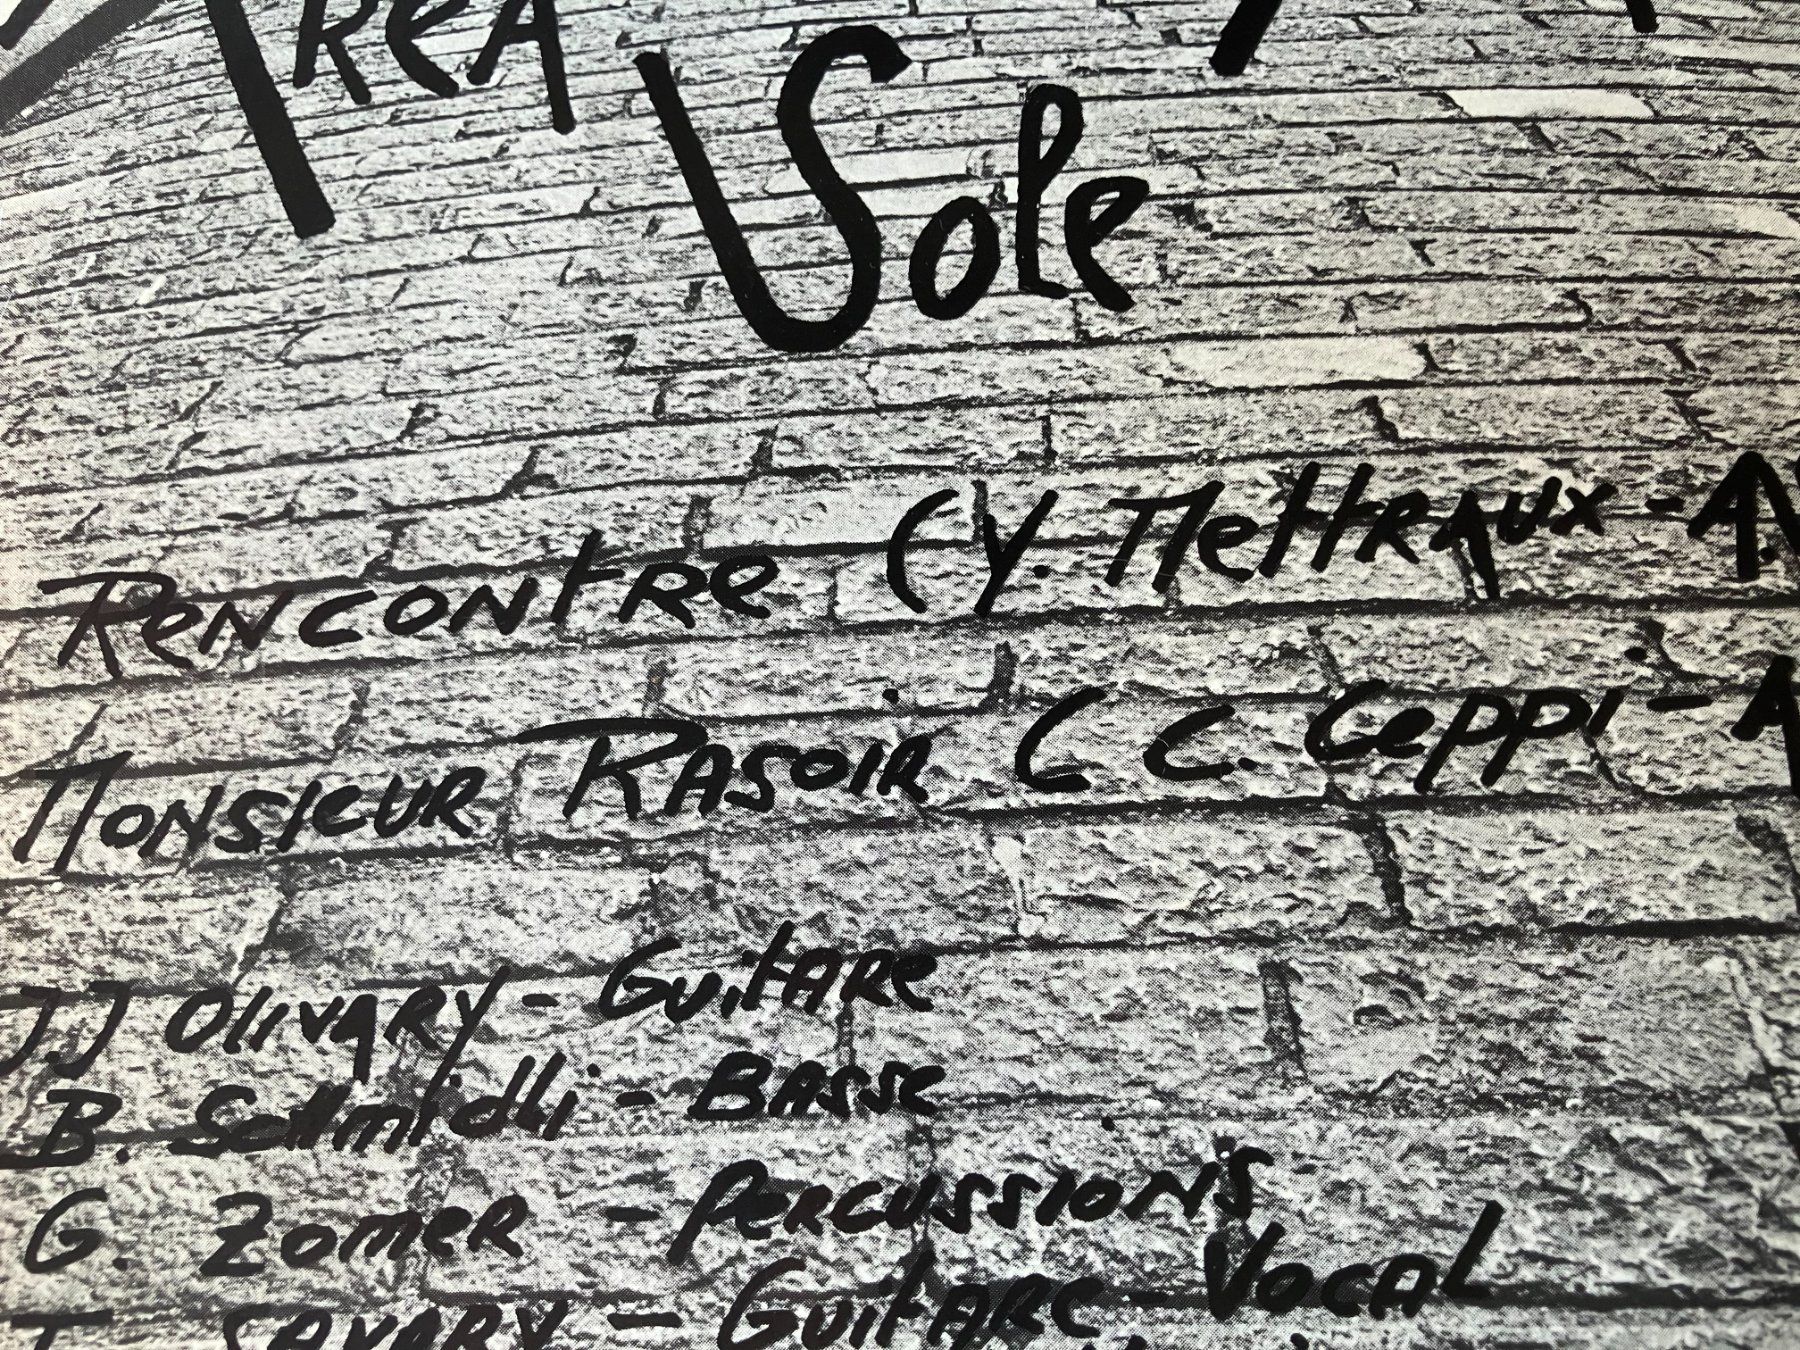 Sole
Rencontre (Y. Mettraux - A.
Monsieur Rasoir ( C. Ceppi - A
J.J Olivary - Guitare
B. Schmidli - Basse
G. Zomer - Percussions
Savary - Guitare Vocal